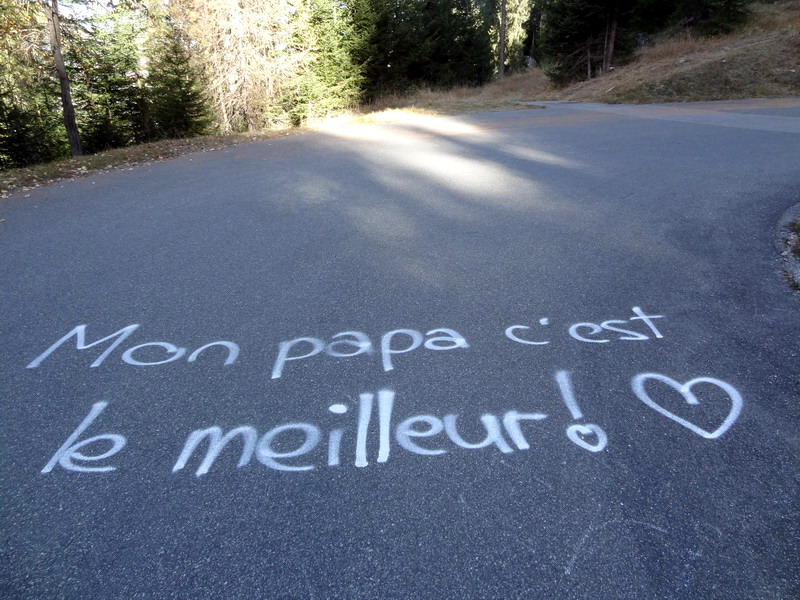 Mon papa c'est
le meilleur! ♡